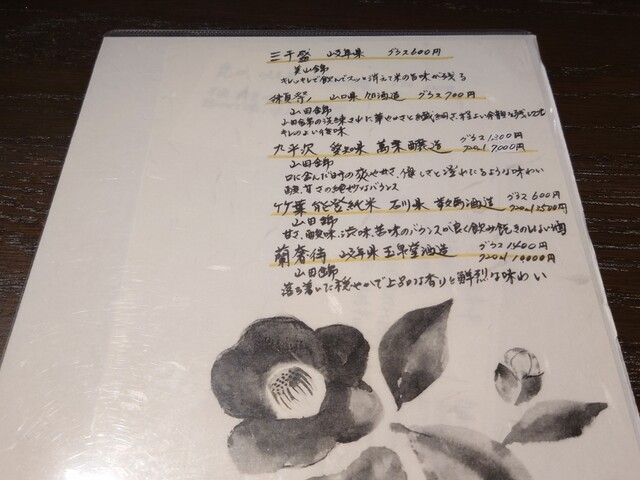 三千盛 岐阜県 グラス600円
美山錦
キレッキレで飲んでスッと消えて米の旨味が残る
獺祭 山口県 旭酒造 グラス700円
山田錦
山田錦の淡味 さわに華やかさと繊細さ、程よい余韻を残しての
キレのよい後味
九平次 愛知県 萬乗醸造 グラス1300円
フルボトル7000円
山田錦
口に含んだ時の爽やかさ、優しさと溢れでるような味わい
酸、甘さの絶妙なバランス
竹葉 能登純米 石川県 数馬酒造 グラス600円
2500円
山田錦
甘さ、酸味、渋味、苦味のバランスが良く飲み飽きのしない酒
蘭奢待 岐阜県 玉泉堂酒造 グラス1400円
10000円
山田錦
落ち着いた穏やかで上品な香りと鮮烈な味わい